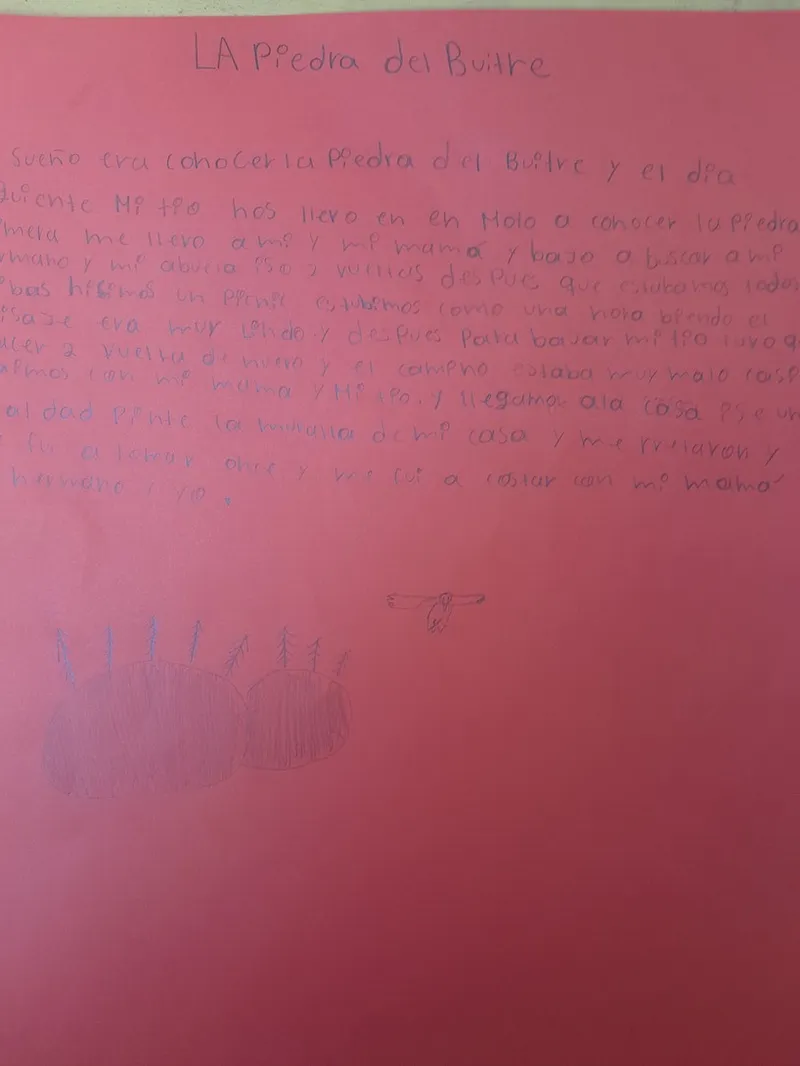 LA Piedra del Buitre
Sueño era conocer la Piedra del Buitre y el dia
guiente Mi tio nos llevo en en Moto a conocer la Piedra
mera me llevo a mi y mi mamá y bajo a buscar a mi
rmano y mi abuela iso 2 vueltas despues que estubamos todos
bas hisimos un picnic estubimos como una hora biendo el
isaje era muy lindo y despues para bajar mi tio tuvo q
acer 2 vuelta de nuevo y el camino estaba muy malo casi
aimos con mi mama y Mi tio. y llegamos ala casa ise un
aldad pinte la de mi casa y me rretaron y
fui a tomar once y me fui a costar con mi mamá
hermano y yo.